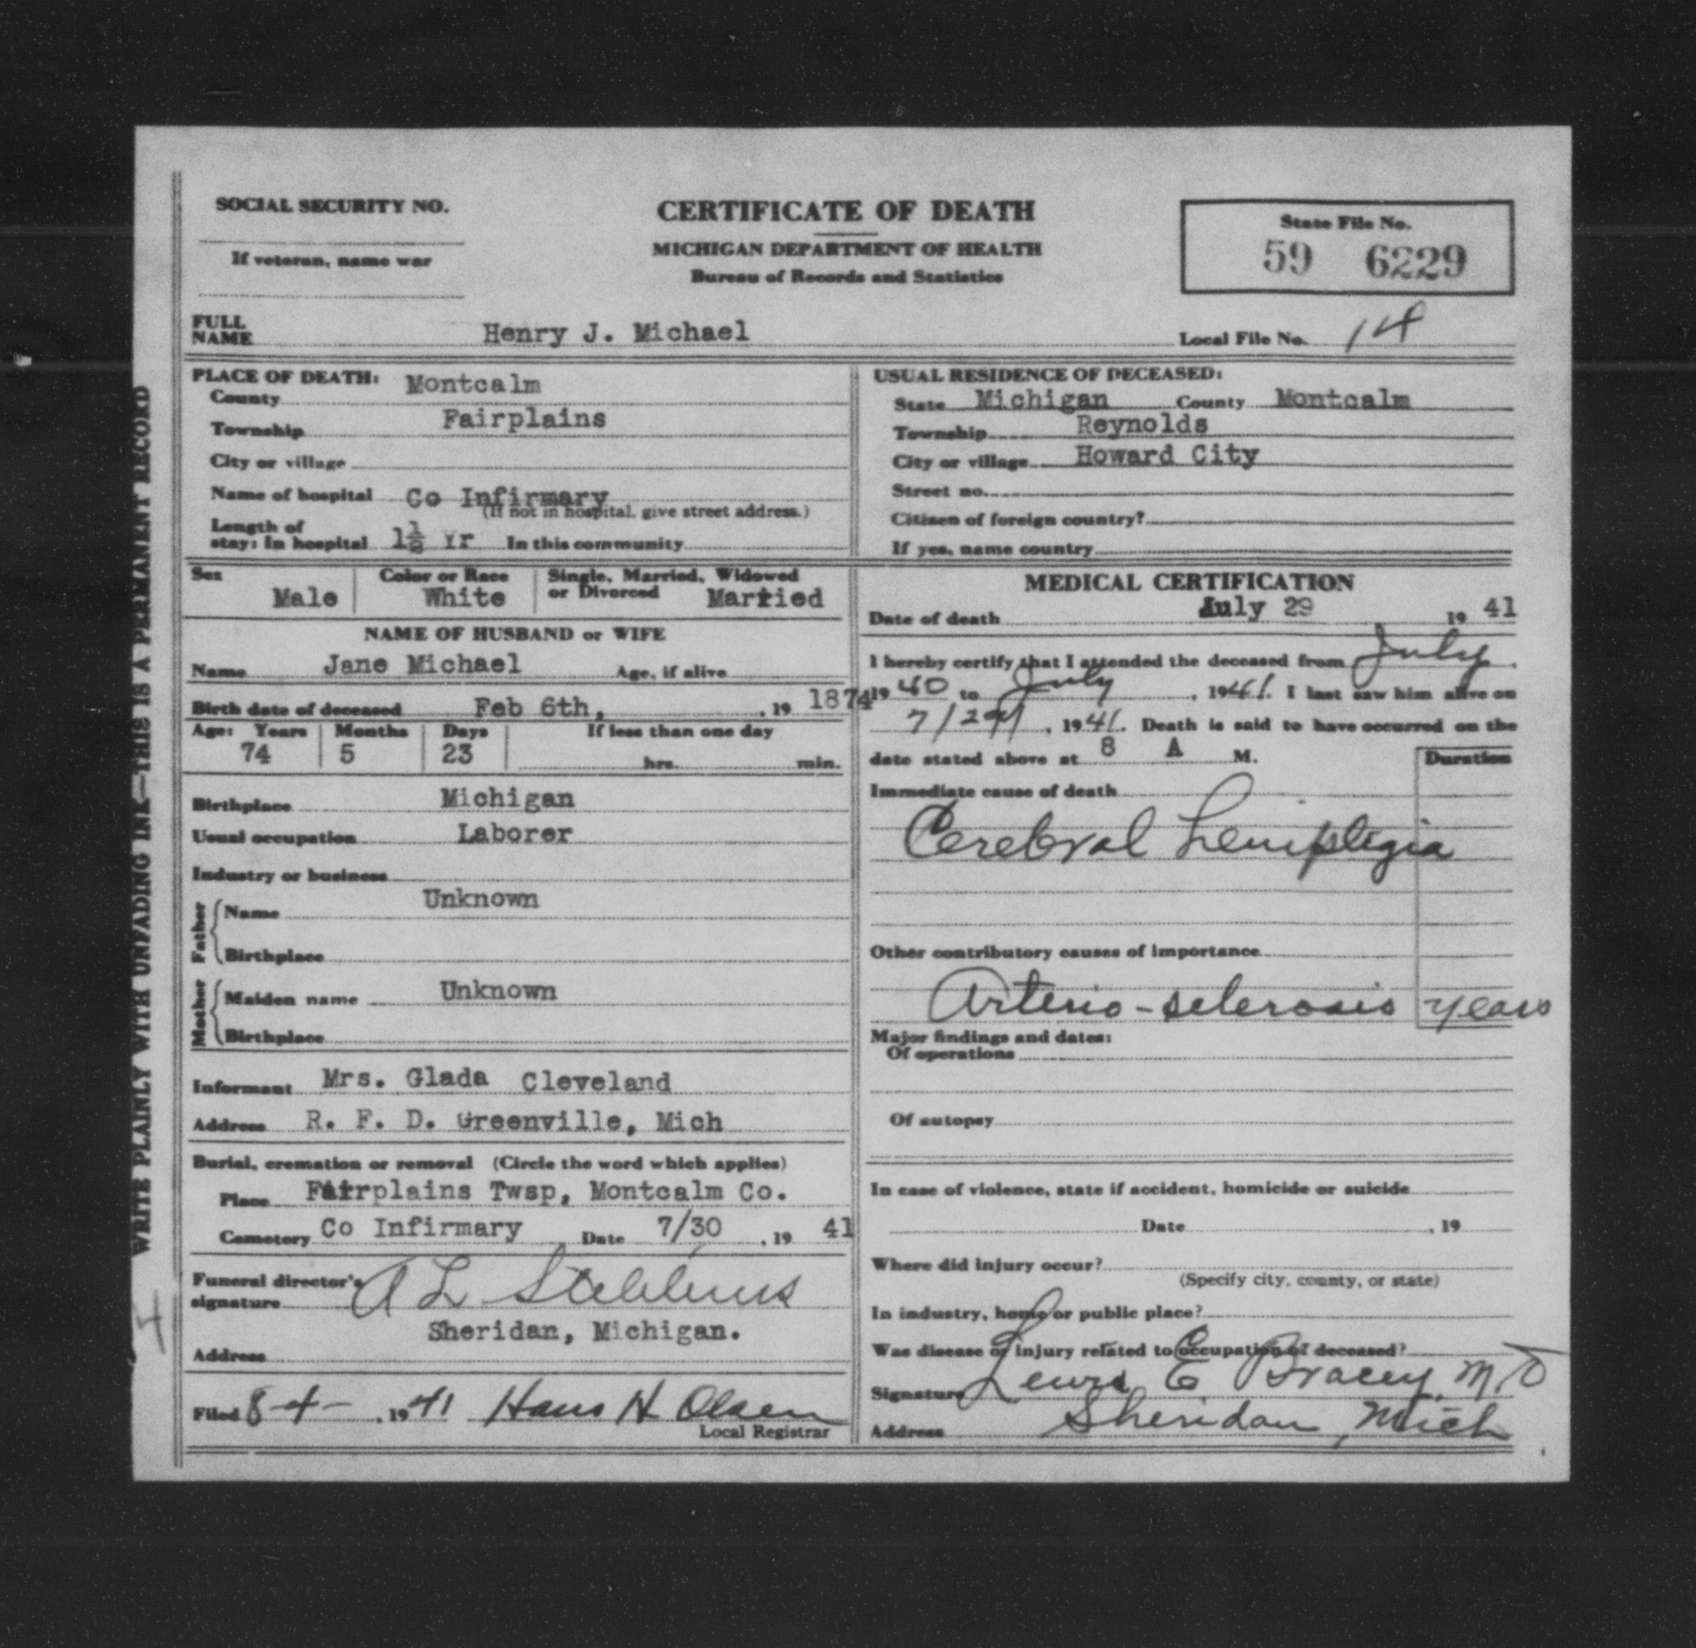 SOCIAL SECURITY NO.
If veteran, name war
CERTIFICATE OF DEATH
MICHIGAN DEPARTMENT OF HEALTH
Bureau of Records and Statistics
State File No.
59 6229
FULL NAME Henry J. Michael
Local File No. 14
PLACE OF DEATH:
County Montcalm
Township Fairplains
City or village
Name of hospital Co Infirmary
(If not in hospital, give street address.)
Length of
stay: In hospital 1½ Yr In this community
USUAL RESIDENCE OF DECEASED:
State Michigan County Montcalm
Township Reynolds
City or village Howard City
Street no.
Citizen of foreign country?
If yes, name country
Sex Male
Color or Race White
Single, Married, Widowed
or Divorced Married
NAME OF HUSBAND or WIFE
Name Jane Michael Age, if alive
Birth date of deceased Feb 6th, , 19 1874
Age: Years Months Days If less than one day
74 5 23 hrs. min.
Birthplace Michigan
Usual occupation Laborer
Industry or business
Father
Name Unknown
Birthplace
Mother
Maiden name Unknown
Birthplace
Informant Mrs. Glada Cleveland
Address R. F. D. Greenville, Mich
Burial, cremation or removal (Circle the word which applies)
Place Fairplains Twsp, Montcalm Co.
Cemetery Co Infirmary Date 7/30 , 19 41
Funeral director's
signature A L Stebbins
Sheridan, Michigan.
Address
Filed 8-4- , 1941 Hans H Olsen
Local Registrar
MEDICAL CERTIFICATION
Date of death July 29 19 41
I hereby certify that I attended the deceased from July ,
19 40 to July , 1941. I last saw him alive on
7/29 , 1941. Death is said to have occurred on the
date stated above at 8 A M.
Duration
Immediate cause of death
Cerebral hemiplegia
Other contributory causes of importance
Arterio-sclerosis years
Major findings and dates:
Of operations
Of autopsy
In case of violence, state if accident, homicide or suicide
Date , 19
Where did injury occur?
(Specify city, county, or state)
In industry, home or public place?
Was disease or injury related to occupation of deceased?
Signature Lewis E. Bracey, M.D
Address Sheridan, Mich
WRITE PLAINLY WITH UNFADING INK—THIS IS A PERMANENT RECORD